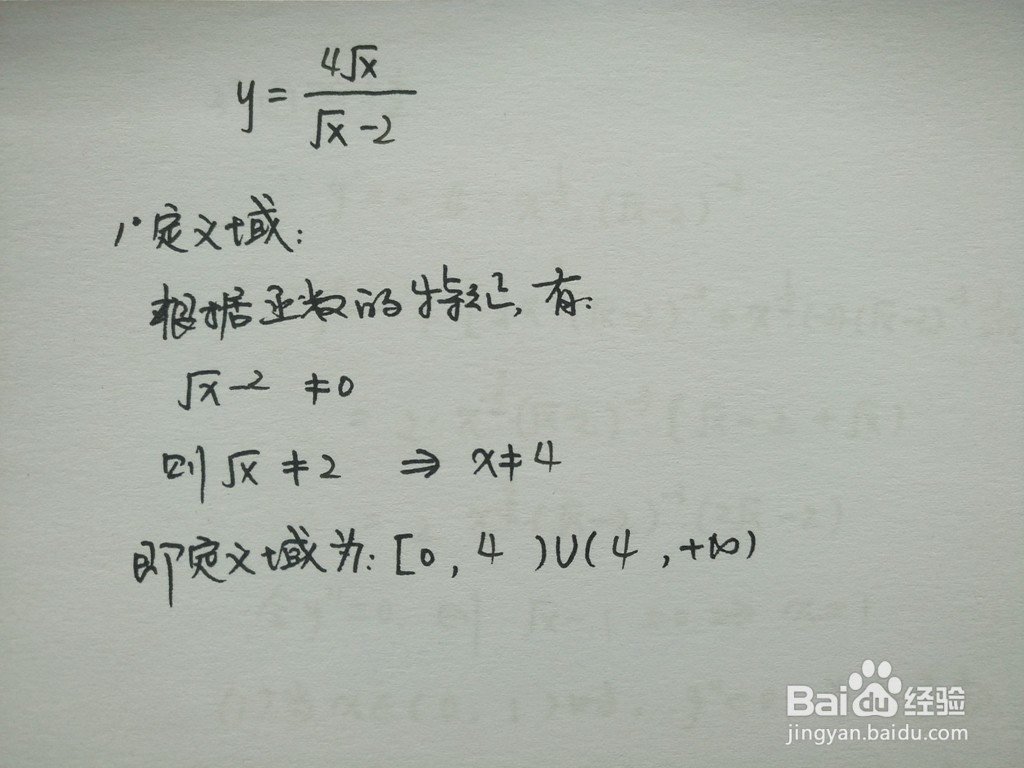 y = 4√x / (√x - 2)
1° 定义域:
根据函数的特征, 有:
√x - 2 ≠ 0
则 √x ≠ 2 ⇒ x ≠ 4
即定义域为: [0, 4)∪(4, +∞)
Baidu 经验
jingyan.baidu.com